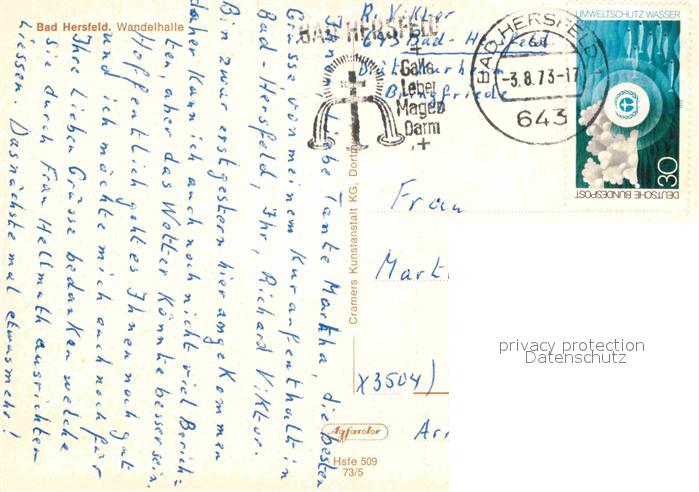 Bad Hersfeld. Wandelhalle
R. Viktor
643 Bad-Hersfeld
BAD HERSFELD
+
Galle
Leber
Magen
Darm
+
BAD HERSFELD 1
-3.8.73-17
643
UMWELTSCHUTZ WASSER
DEUTSCHE BUNDESPOST
30
liebe Tante Martha, die besten
Grüsse von meinem Kuraufenthalt in
Bad-Hersfeld, Ihr, Richard Viktor.
Bin zwar erst gestern hier angekommen
daher kann ich auch noch nicht viel Berich=
ten, aber das Wetter könnte besser sein.
Hoffentlich geht es Ihnen noch gut
und ich möchte mich auch noch für
Ihre Lieben Grüsse bedanken welche
Sie durch Frau Hellmuth ausrichten
liessen. Das nächste mal etwas mehr!
Cramers Kunstanstalt KG, Dortmu
Frau
Mart
X3504)
Agfacolor
Hsfe 509
73/5
privacy protection
Datenschutz